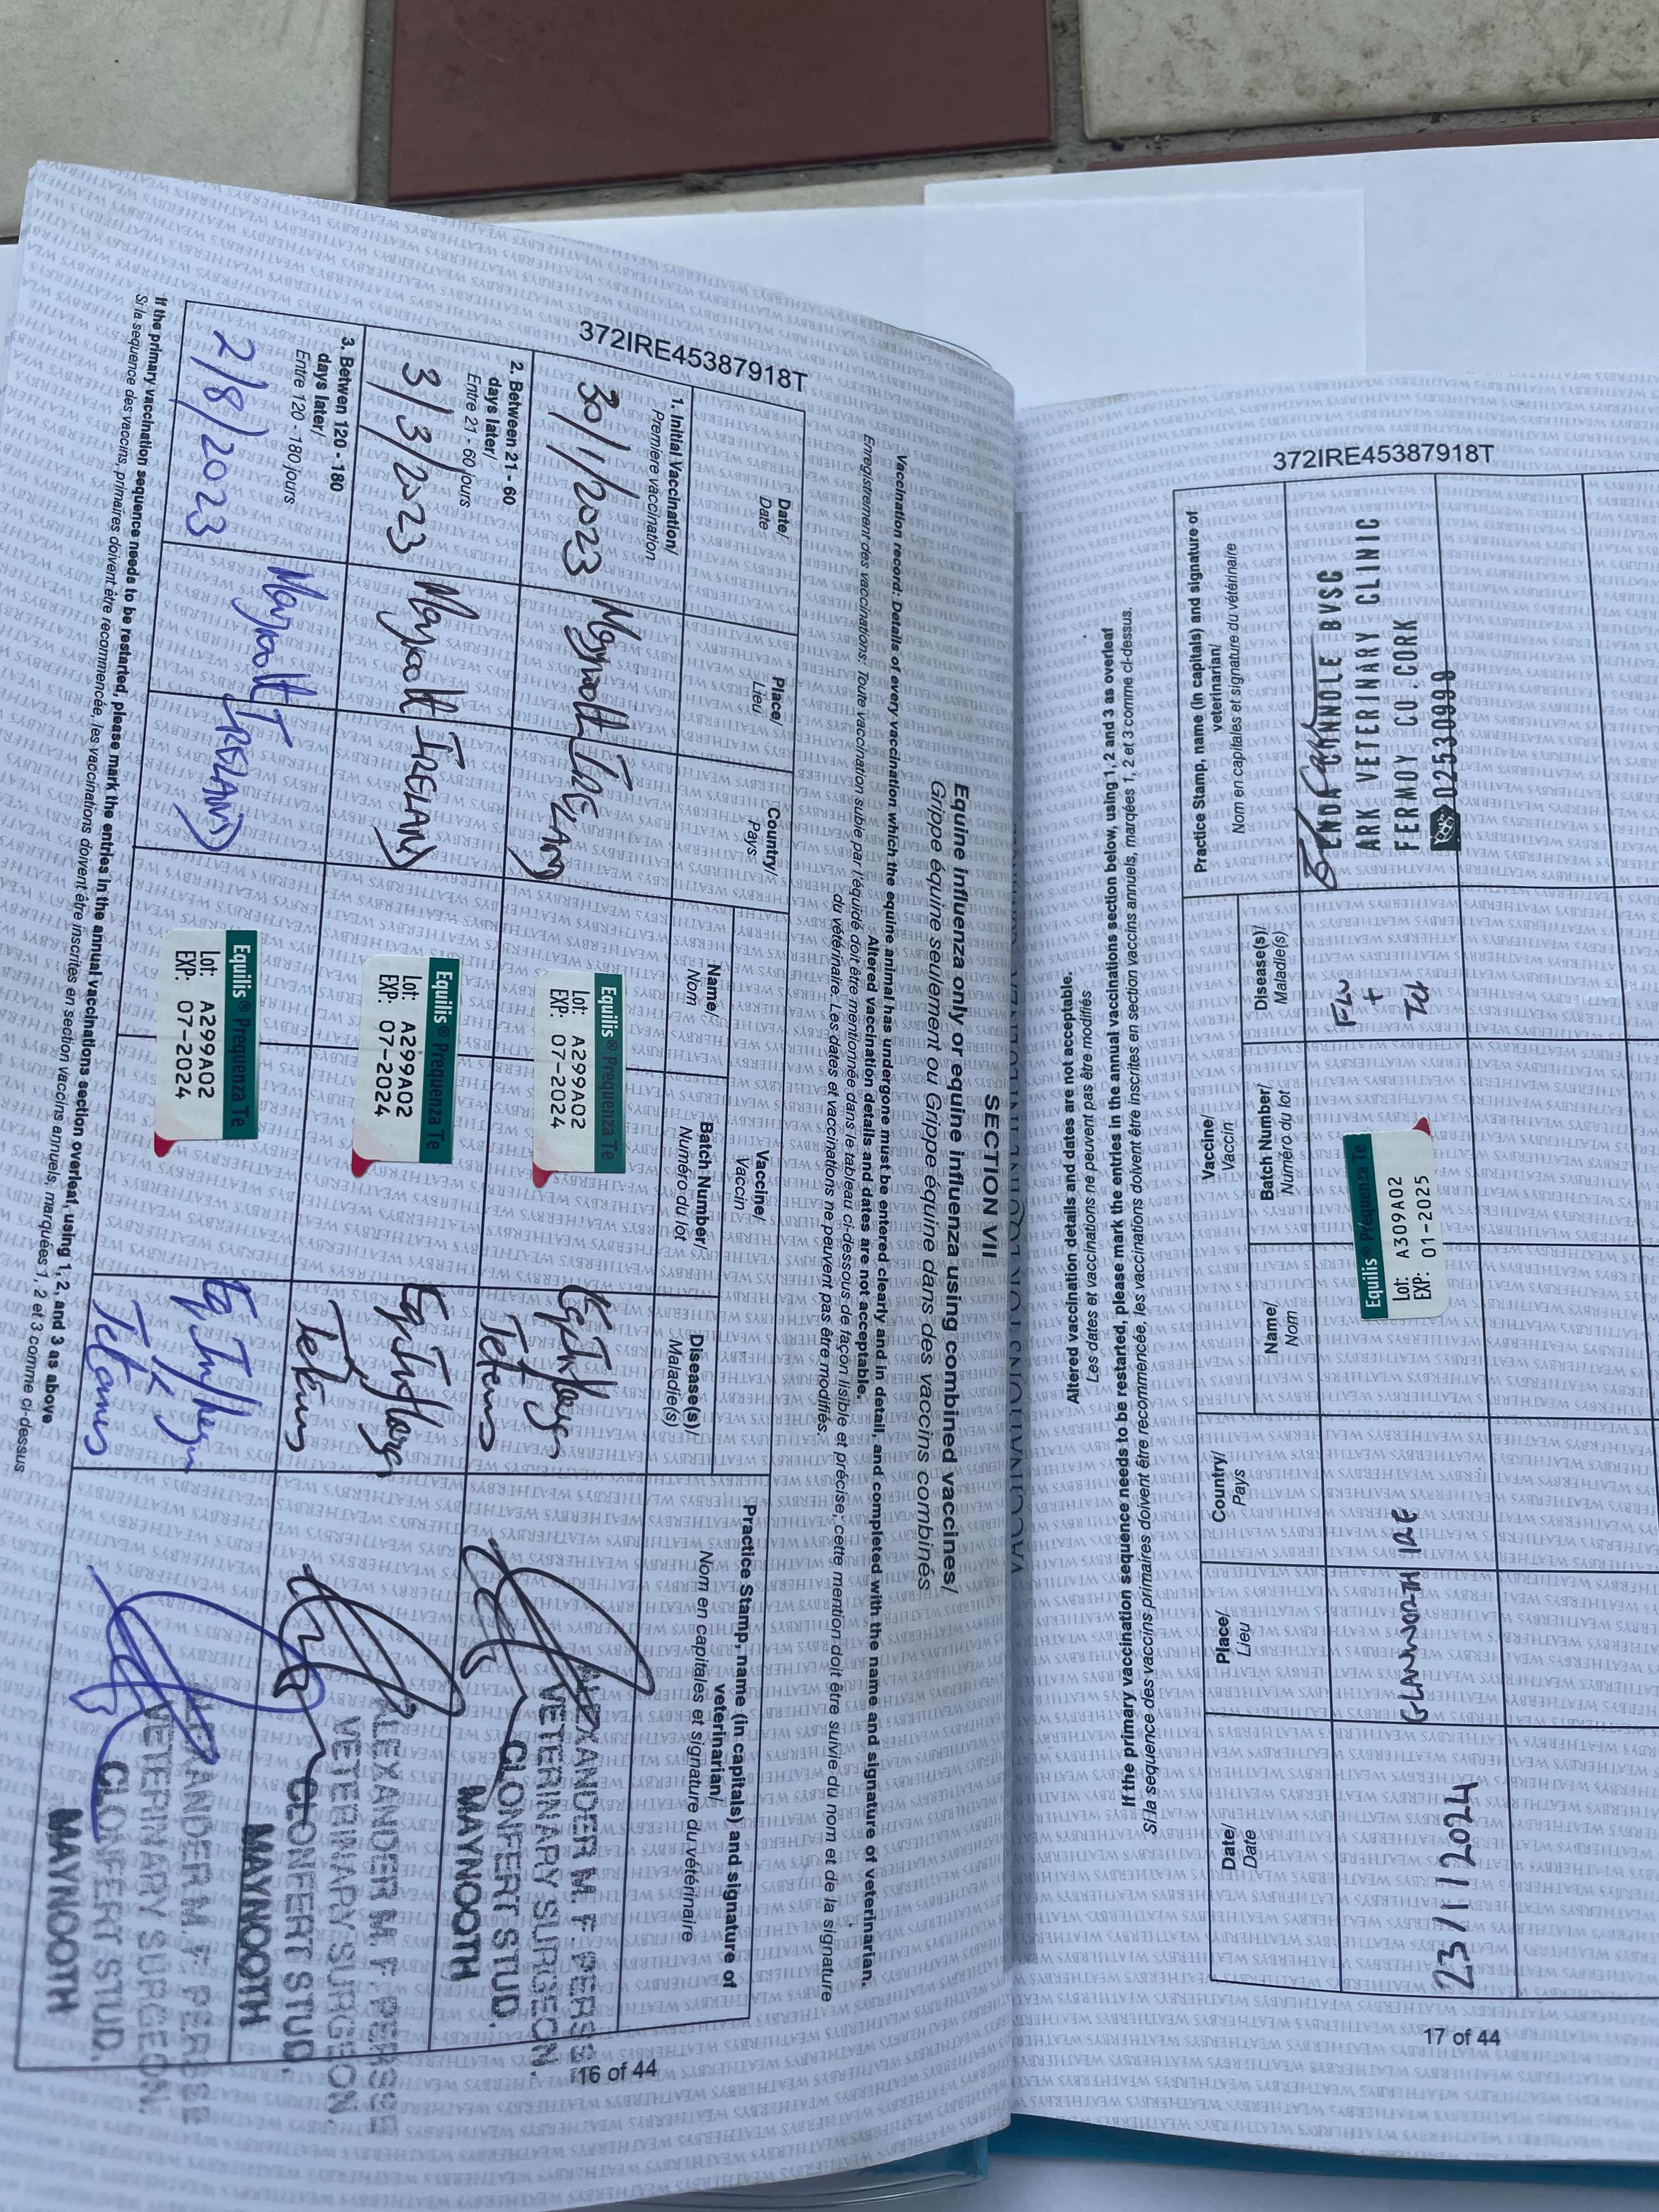 372IRE45387918T
SECTION VII
Equine influenza only or equine influenza using combined vaccines/
Grippe équine seulement ou Grippe équine dans des vaccins combinés
Vaccination record: Details of every vaccination which the equine animal has undergone must be entered clearly and in detail, and completed with the name and signature of veterinarian.
Altered vaccination details and dates are not acceptable.
Enregistrement des vaccinations: Toute vaccination subie par l'équidé doit être mentionnée dans le tableau ci-dessous de façon lisible et précise; cette mention doit être suivie du nom et de la signature
du vétérinaire. Les dates et vaccinations ne peuvent pas être modifiés.
Date/
Date
Place/
Lieu
Country/
Pays
Vaccine/
Vaccin
Name/
Nom
Batch Number/
Numéro du lot
Disease(s)/
Maladie(s)
Practice Stamp, name (in capitals) and signature of
veterinarian/
Nom en capitales et signature du vétérinaire
1. Initial Vaccination/
Première vaccination
30/1/2023
Maynooth
IRELAND
Equilis® Prequenza Te
Lot: A299A02
EXP: 07-2024
Tetanus
ALEXANDER M. F. PERSSE
VETERINARY SURGEON.
CLONFERT STUD,
MAYNOOTH
2. Between 21 - 60
days later/
Entre 21 - 60 jours
3/3/2023
Maynooth
IRELAND
Equilis® Prequenza Te
Lot: A299A02
EXP: 07-2024
Tetanus
ALEXANDER M. F. PERSSE
VETERINARY SURGEON.
CLONFERT STUD,
MAYNOOTH
3. Betwen 120 - 180
days later/
Entre 120 - 180 jours
2/8/2023
Maynooth
IRELAND
Equilis® Prequenza Te
Lot: A299A02
EXP: 07-2024
Tetanus
ALEXANDER M. F. PERSSE
VETERINARY SURGEON.
CLONFERT STUD,
MAYNOOTH
If the primary vaccination sequence needs to be restarted, please mark the entries in the annual vaccinations section overleaf, using 1, 2, and 3 as above
Si la sequence des vaccins primaires doivent être recommencée, les vaccinations doivent être inscrites en section vaccins annuels, marquées 1, 2 et 3 comme ci-dessus
16 of 44
372IRE45387918T
Altered vaccination details and dates are not acceptable.
Les dates et vaccinations ne peuvent pas être modifiés
If the primary vaccination sequence needs to be restarted, please mark the entries in the annual vaccinations section below, using 1, 2 and 3 as overleaf
Si la sequence des vaccins primaires doivent être recommencée, les vaccinations doivent être inscrites en section vaccins annuels, marquées 1, 2 et 3 comme ci-dessus.
Date/
Date
Place/
Lieu
Country/
Pays
Vaccine/
Vaccin
Name/
Nom
Batch Number/
Numéro du lot
Disease(s)/
Maladie(s)
Practice Stamp, name (in capitals) and signature of
veterinarian/
Nom en capitales et signature du vétérinaire
23/1/2024
GLANWORTH
IRE
Equilis® Prequenza Te
Lot: A309A02
EXP: 01-2025
FLU
+
Tet
ENDA CONDLE BVSC
ARK VETERINARY CLINIC
FERMOY CO.CORK
02530999
17 of 44